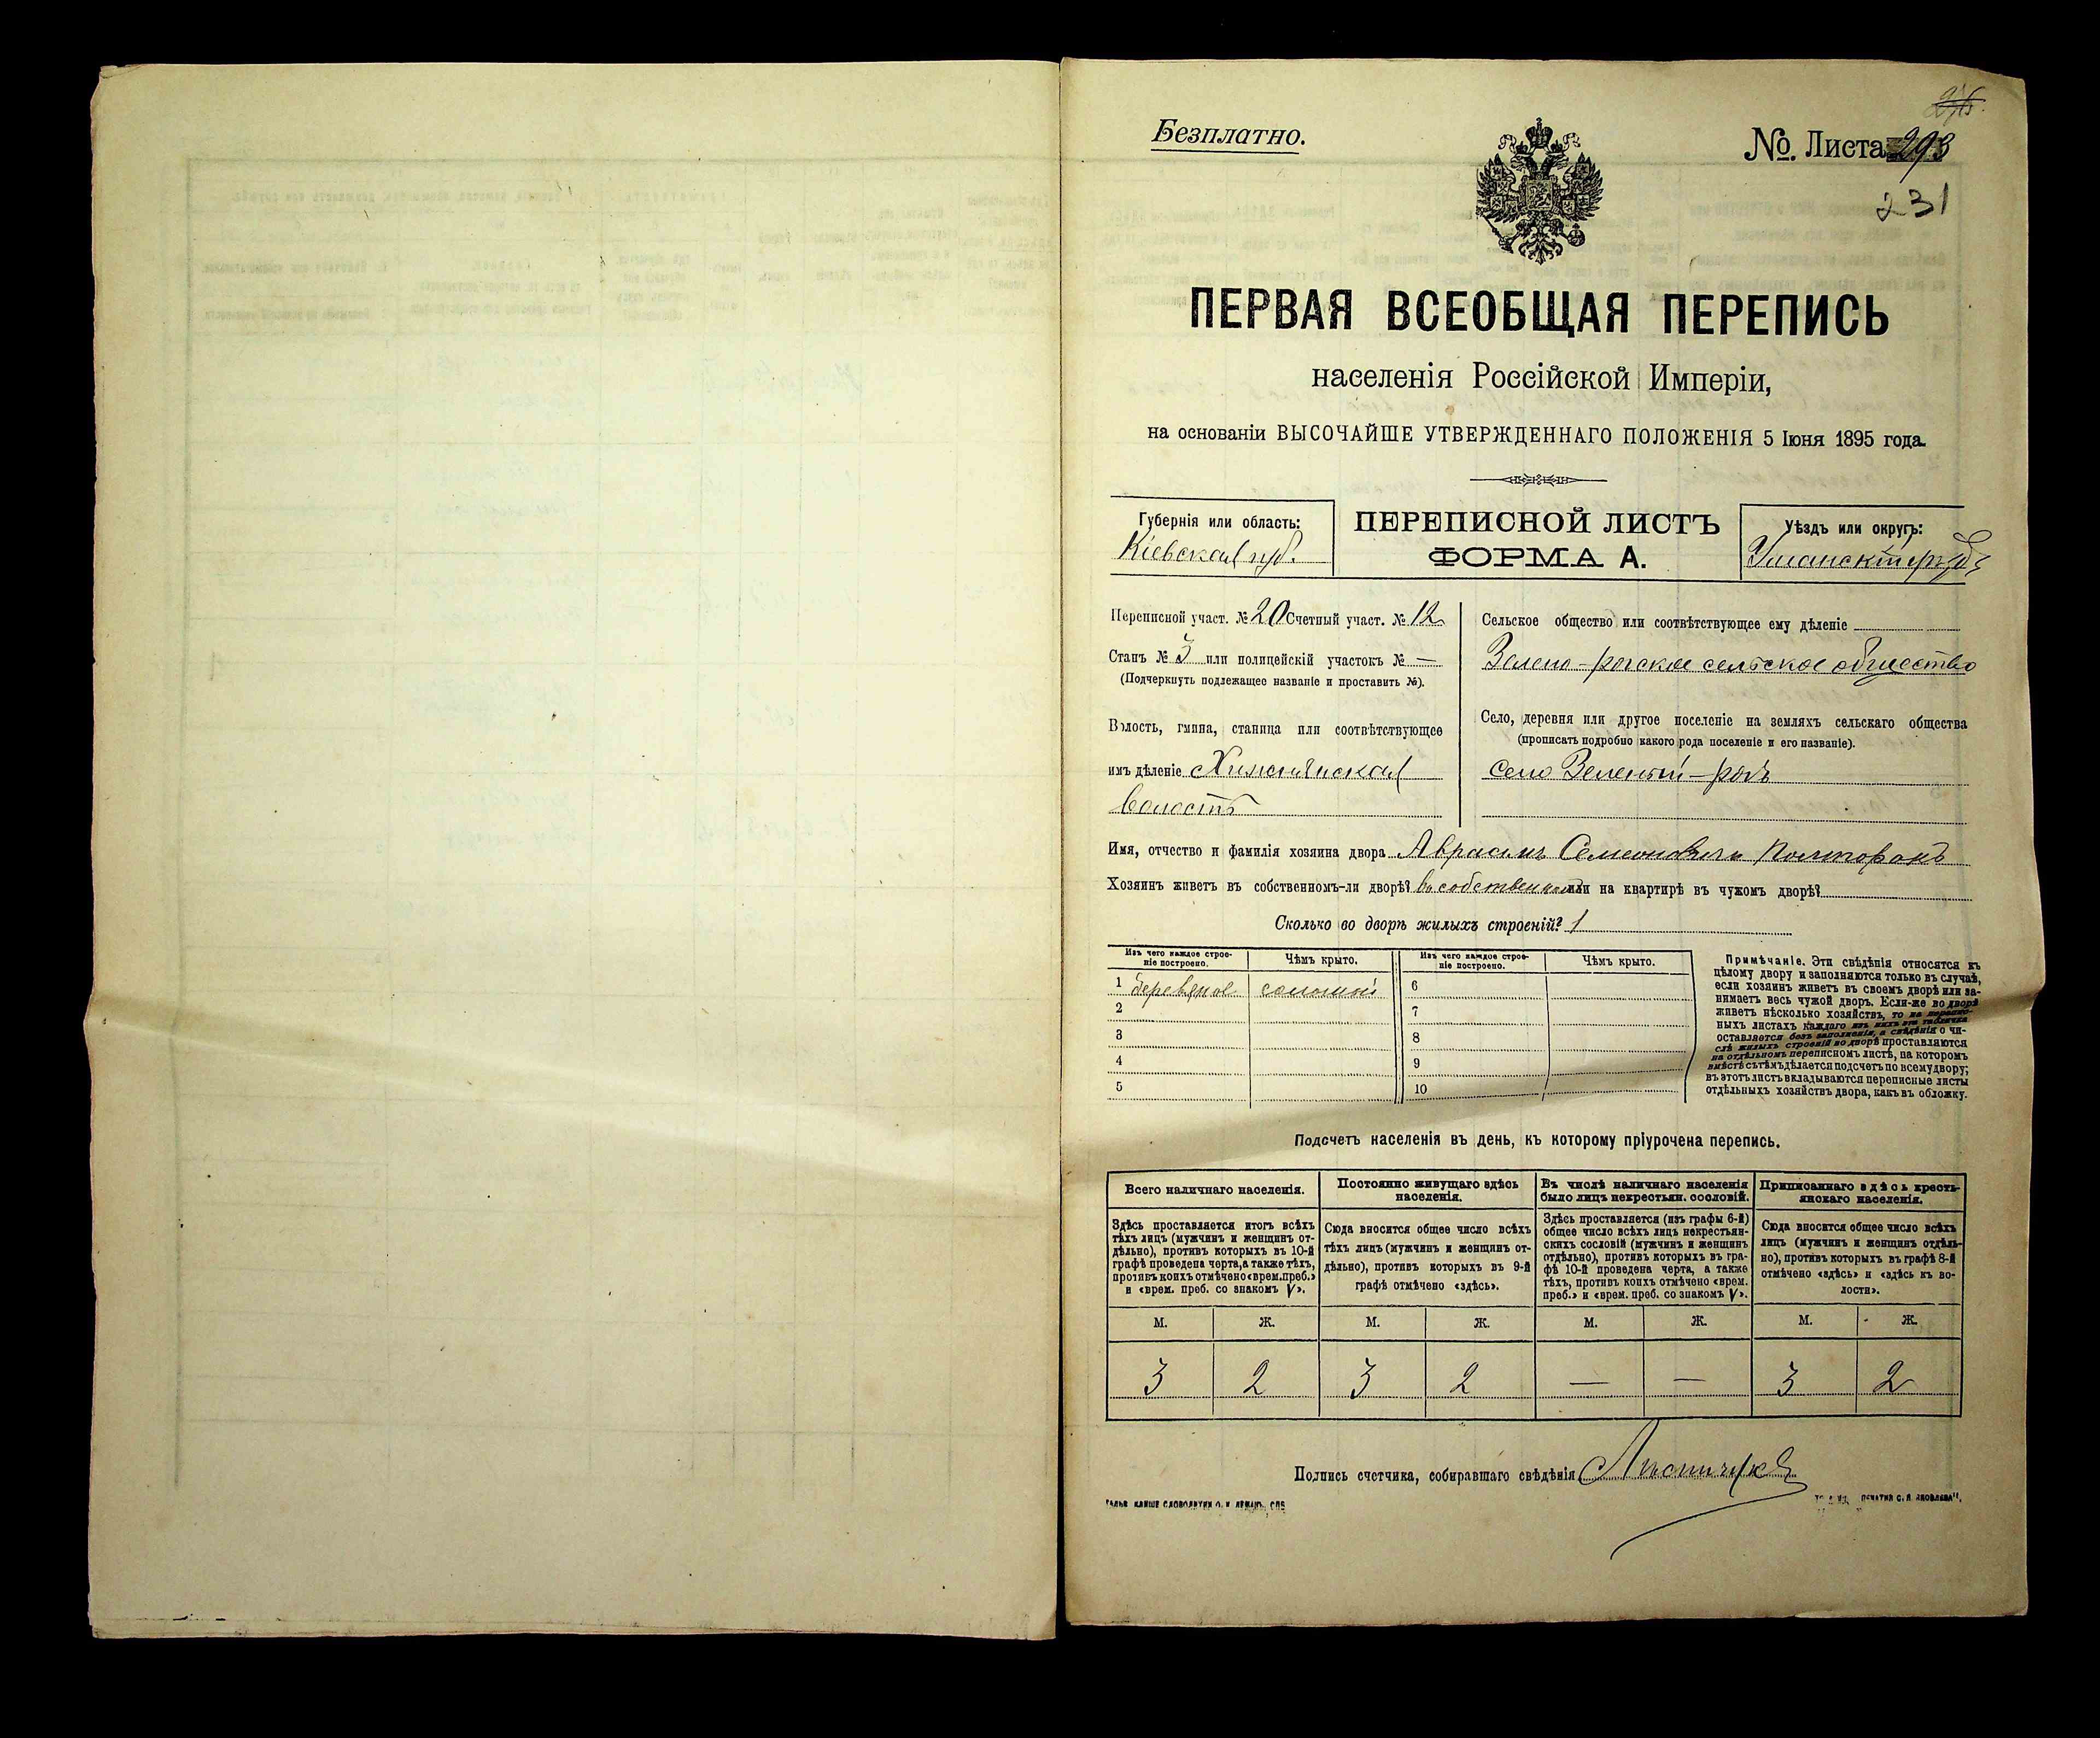 Безплатно.
№. Листа 293
231
ПЕРВАЯ ВСЕОБЩАЯ ПЕРЕПИСЬ
населенія Россійской Имперіи,
на основаніи ВЫСОЧАЙШЕ УТВЕРЖДЕННАГО ПОЛОЖЕНІЯ 5 Іюня 1895 года.
Губернія или область:
Кіевская губ.
ПЕРЕПИСНОЙ ЛИСТЪ
ФОРМА А.
Уѣздъ или округъ:
Уманскій уѣздъ
Переписной участ. № 20 Счетный участ. № 12
Станъ № 3 или полицейскій участокъ № —
(Подчеркнуть подлежащее названіе и проставить №).
Волость, гмина, станица или соотвѣтствующее
имъ дѣленіе Хижнянская
волость
Сельское общество или соотвѣтствующее ему дѣленіе
Зелено-рогское сельское общество
Село, деревня или другое поселеніе на земляхъ сельскаго общества
(прописать подробно какого рода поселеніе и его названіе).
село Зеленый-рогъ
Имя, отчество и фамилія хозяина двора Аврамъ Семеновичъ
Хозяинъ живетъ въ собственномъ-ли дворѣ? въ собственномъ или на квартирѣ въ чужомъ дворѣ?
Сколько во дворѣ жилыхъ строеній? 1
Изъ чего каждое строе-
ніе построено.
Чѣмъ крыто.
Изъ чего каждое строе-
ніе построено.
Чѣмъ крыто.
1 деревяное соломой 6
2 7
3 8
4 9
5 10
Примѣчаніе. Эти свѣдѣнія относятся къ
цѣлому двору и заполняются только въ случаѣ,
если хозяинъ живетъ въ своемъ дворѣ или за-
нимаетъ весь чужой дворъ. Если-же во дворѣ
живетъ нѣсколько хозяйствъ, то на перепис-
ныхъ листахъ каждаго изъ нихъ эта табличка
оставляется безъ заполненія, а свѣдѣнія о чи-
слѣ жилыхъ строеній во дворѣ проставляются
на отдѣльномъ переписномъ листѣ, на которомъ
вмѣстѣ съ тѣмъ дѣлается подсчетъ по всему двору;
въ этотъ листъ вкладываются переписные листы
отдѣльныхъ хозяйствъ двора, какъ въ обложку.
Подсчетъ населенія въ день, къ которому пріурочена перепись.
Всего наличнаго населенія.
Постоянно живущаго здѣсь
населенія.
Въ числѣ наличнаго населенія
было лицъ некрестьян. сословій.
Приписаннаго здѣсь кресть-
янскаго населенія.
Здѣсь проставляется итогъ всѣхъ
тѣхъ лицъ (мужчинъ и женщинъ от-
дѣльно), противъ которыхъ въ 10-й
графѣ проведена черта, а также тѣхъ,
противъ коихъ отмѣчено «врем. преб.»
и «врем. преб. со знакомъ V».
Сюда вносится общее число всѣхъ
тѣхъ лицъ (мужчинъ и женщинъ от-
дѣльно), противъ которыхъ въ 9-й
графѣ отмѣчено «здѣсь».
Здѣсь проставляется (изъ графы 6-й)
общее число всѣхъ лицъ некрестьян-
скихъ сословій (мужчинъ и женщинъ
отдѣльно), противъ которыхъ въ гра-
фѣ 10-й проведена черта, а также
тѣхъ, противъ коихъ отмѣчено «врем.
преб.» и «врем. преб. со знакомъ V».
Сюда вносится общее число всѣхъ
лицъ (мужчинъ и женщинъ отдѣль-
но), противъ которыхъ въ графѣ 8-й
отмѣчено «здѣсь» и «здѣсь къ во-
лости».
М. Ж. М. Ж. М. Ж. М. Ж.
3 2 3 2 — — 3 2
Подпись счетчика, собиравшаго свѣдѣнія